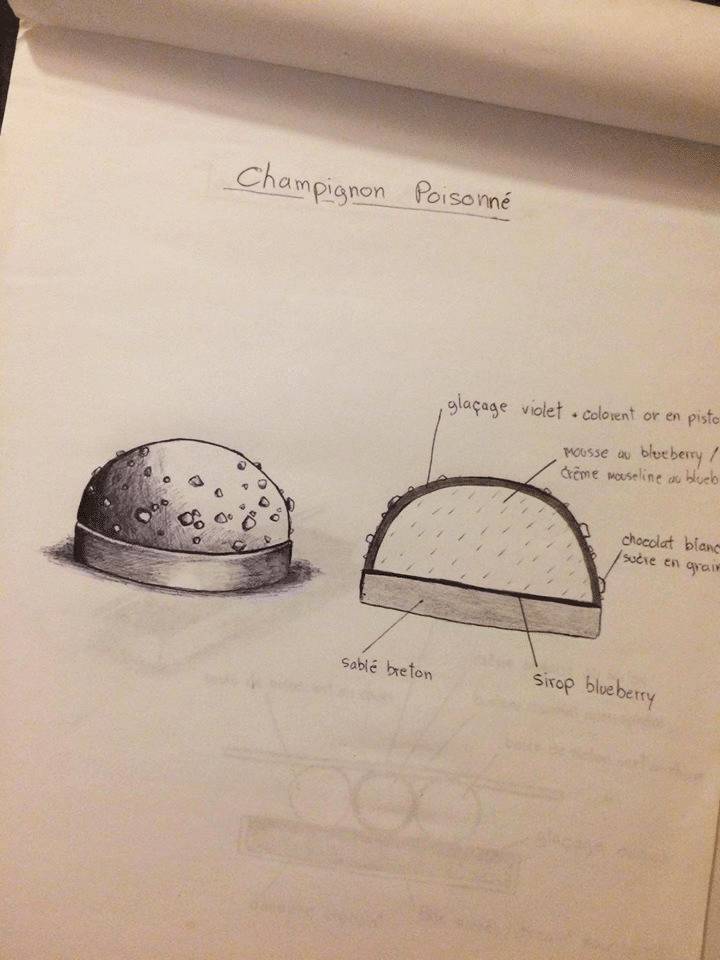 Champignon Poisonné
glaçage violet + colorent or en pisto
mousse au blueberry /
crème mouseline au blueb
chocolat blanc
sucre en grain
sablé breton
sirop blueberry